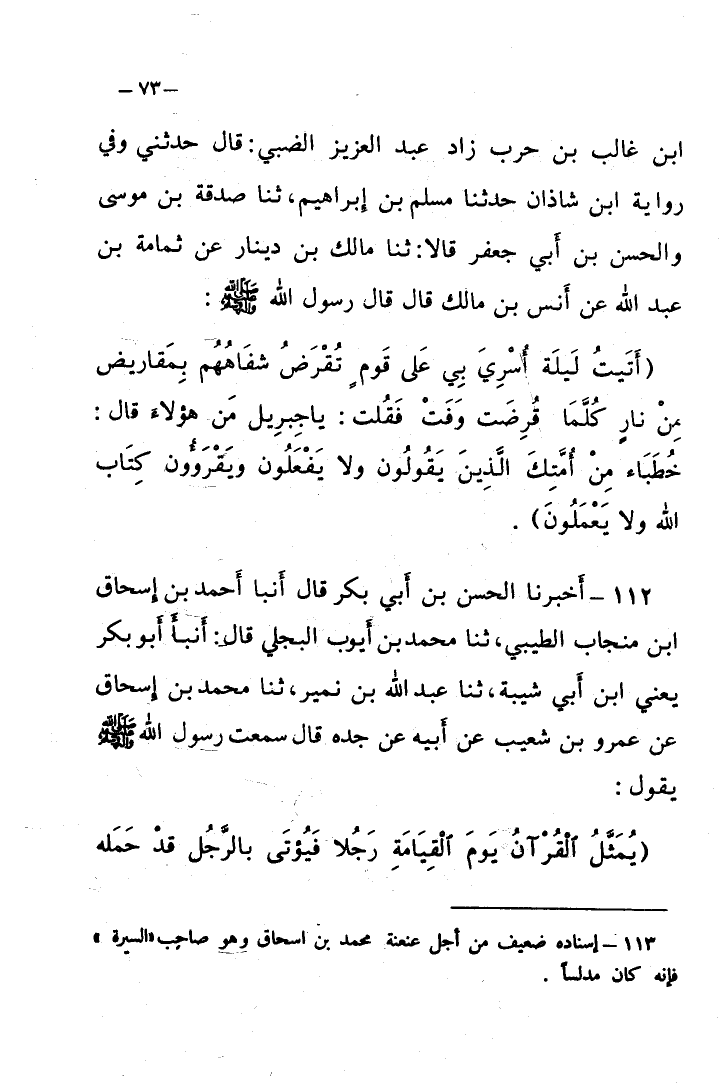 — ٧٣ —
ابن غالب بن حرب زاد عبد العزيز الضبي: قال حدثني وفي
رواية ابن شاذان حدثنا مسلم بن إبراهيم، ثنا صدقة بن موسى
والحسن بن أبي جعفر قالا: ثنا مالك بن دينار عن ثمامة بن
عبد الله عن أنس بن مالك قال قال رسول الله ﷺ :
(أَتَيتُ لَيلَة أُسْرِيَ بِي عَلى قَومٍ تُقْرَضُ شفَاهُهُم بِمَقاريض
مِنْ نارٍ كُلَّمَا قُرِضَت وَفَتْ فَقُلت : ياجبريل مَن هؤلاء قال :
خُطَبَاء مِنْ أُمَّتِكَ الَّذِينَ يَقُولُون ولا يَفْعَلُون ويَقْرَؤُون كِتَاب
الله ولا يَعْمَلُونَ) .
١١٢ – أخبرنا الحسن بن أبي بكر قال أنبا أحمد بن إسحاق
ابن منجاب الطيبي، ثنا محمد بن أيوب البجلي قال: أنبأ أبو بكر
يعني ابن أبي شيبة، ثنا عبد الله بن نمير، ثنا محمد بن إسحاق
عن عمرو بن شعيب عن أبيه عن جده قال سمعت رسول الله ﷺ
يقول :
(يُمَثَّلُ ٱلْقُرْآنُ يَومَ ٱلْقِيَامَةِ رَجُلا فَيُؤتَى بالرَّجُل قدْ حَمَله
١١٣ – إسناده ضعيف من أجل عنعنة محمد بن اسحاق وهو صاحب «السيرة »
فإنه كان مدلساً .